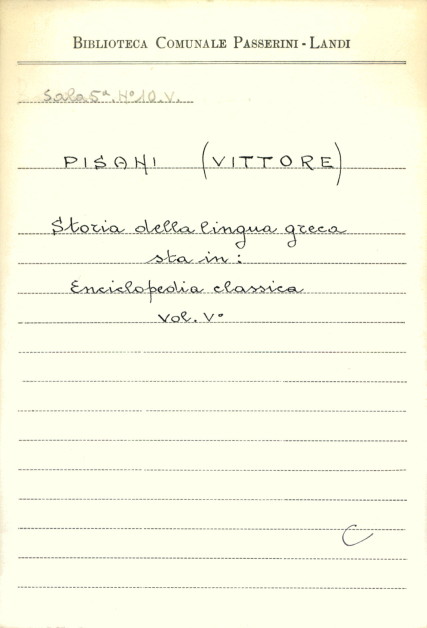 BIBLIOTECA COMUNALE PASSERINI - LANDI
Sala 5ª. Nº 10. V.
PISANI (VITTORE)
Storia della lingua greca
sta in:
Enciclopedia classica
Vol. Vº
C